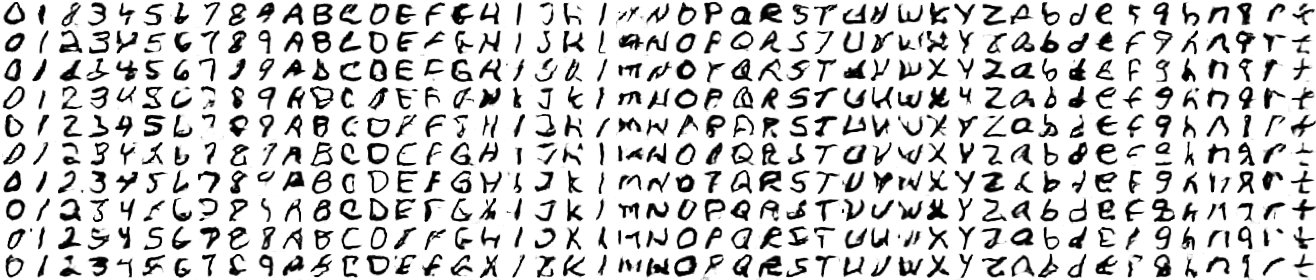 0 1 8 3 4 5 6 7 8 9 A B C D E F G H I J K L M N O P Q R S T U V W X Y Z A b d e f g h n q r t
0 1 2 3 4 5 6 7 8 9 A B C D E F G H I J K L M N O P Q R S T U V W X Y Z a b d e f g h n q r t
0 1 2 3 4 5 6 7 8 9 A B C D E F G H I J K L M N O P Q R S T U V W X Y Z a b d e f g h n q r t
0 1 2 3 4 5 6 7 8 9 A B C D E F G H I J K L M N O P Q R S T U V W X Y Z a b d e f g h n q r t
0 1 2 3 4 5 6 7 8 9 A B C D E F G H I J K L M N A P Q R S T U V W X Y Z a b d e f g h n q r t
0 1 2 3 4 5 6 7 8 9 A B C D E F G H I J K L M N O P Q R S T U V W X Y Z a b d e f g h n q r t
0 1 2 3 4 5 6 7 8 9 A B C D E F G H I J K L M N O P Q R S T U V W X Y Z a b d e f g h n q r t
0 1 2 3 4 5 6 7 8 9 A B C D E F G H I J K L M N O P Q R S T U V W X Y Z a b d e f g h n q r t
0 1 2 3 4 5 6 7 8 9 A B C D E F G H I J K L M N O P Q R S T U V W X Y Z a b d e f g h n q r t
0 1 2 3 4 5 6 7 8 9 A B C D E F G H I J K L M N O P Q R S T U V W X Y Z a b d e f g h n q r t